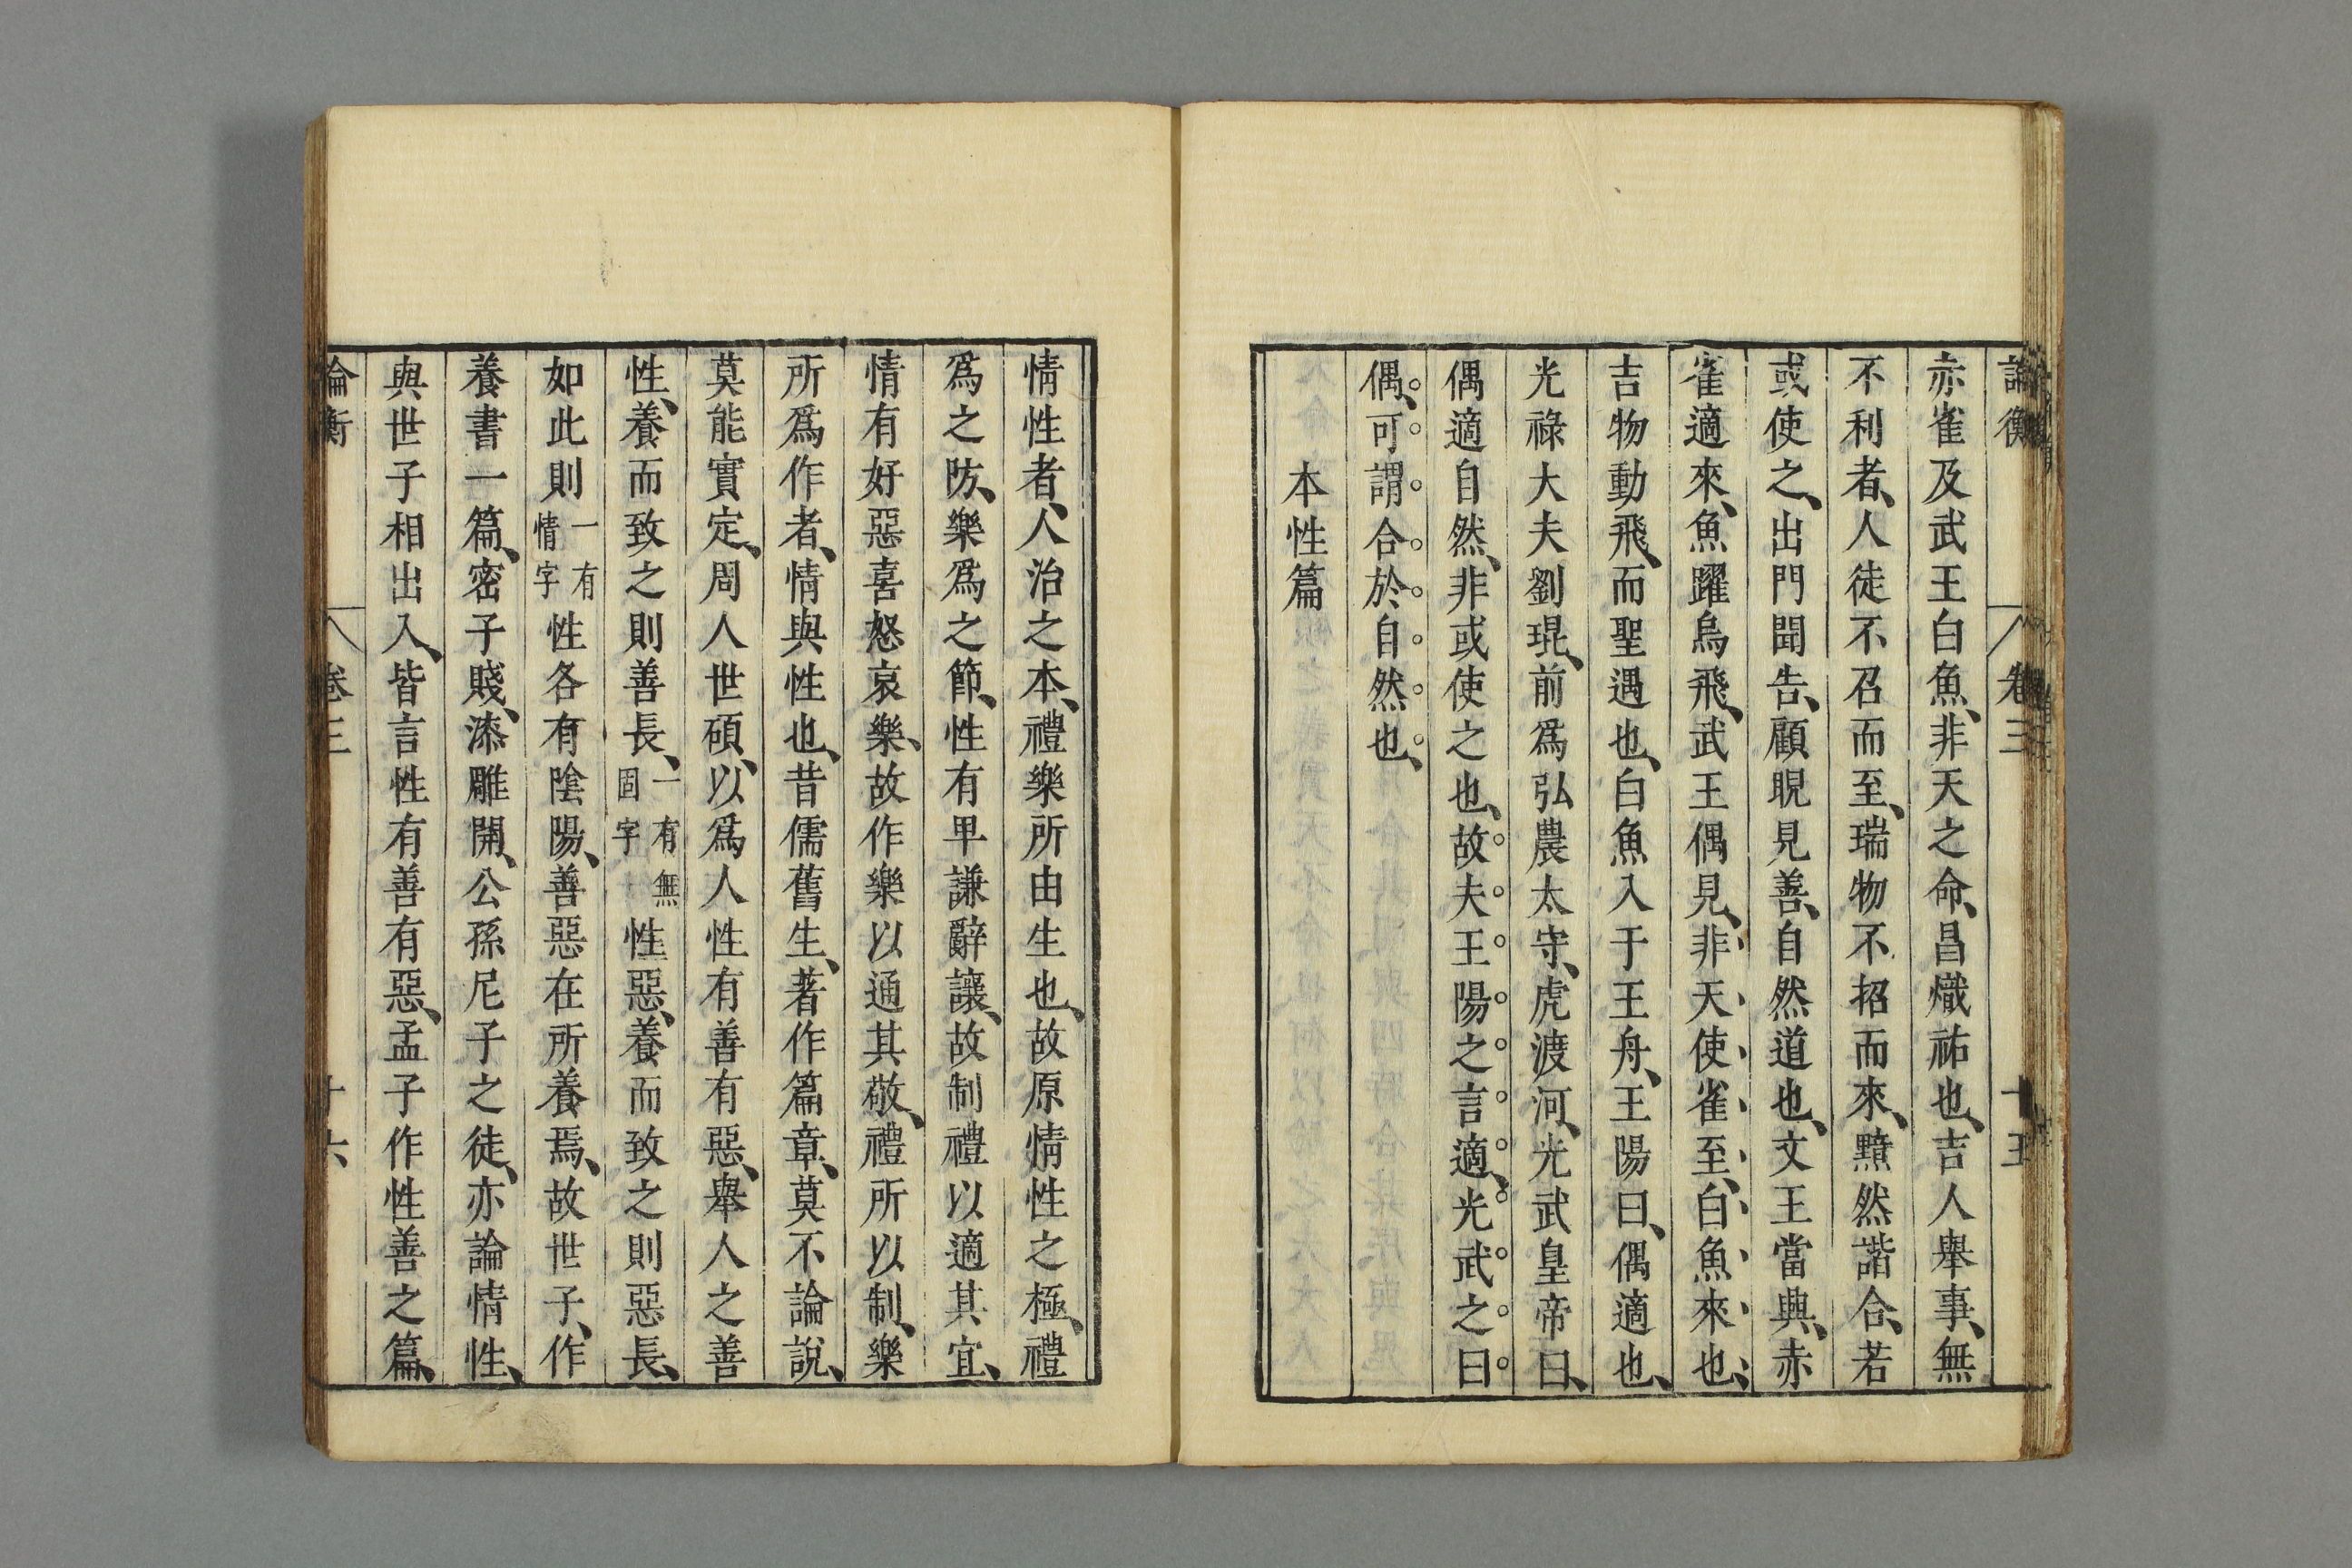 論衡 卷三 十五
赤雀及武王白魚、非天之命、昌熾祐也、吉人舉事、無
不利者、人徒不召而至、瑞物不招而來、黯然諧合、若
或使之、出門聞告、顧睨見善、自然道也、文王當興、赤
雀適來、魚躍烏飛、武王偶見、非天使雀至、白魚來也、
吉物動飛、而聖遇也、白魚入于王舟、王陽曰、偶適也、
光祿大夫劉琨、前爲弘農太守、虎渡河、光武皇帝曰、
偶適自然、非或使之也、故夫王陽之言適、光武之曰
偶、可謂合於自然也、
本性篇
情性者、人治之本、禮樂所由生也、故原情性之極、禮
爲之防、樂爲之節、性有卑謙辭讓、故制禮以適其宜、
情有好惡喜怒哀樂、故作樂以通其敬、禮所以制、樂
所爲作者、情與性也、昔儒舊生、著作篇章、莫不論說、
莫能實定、周人世碩、以爲人性有善有惡、舉人之善
性、養而致之則善長、一有無固字性惡、養而致之則惡長、
如此則一有情字性各有陰陽、善惡在所養焉、故世子、作
養書一篇、密子賤、漆雕開、公孫尼子之徒、亦論情性、
與世子相出入、皆言性有善有惡、孟子作性善之篇、
論衡 卷三 十六